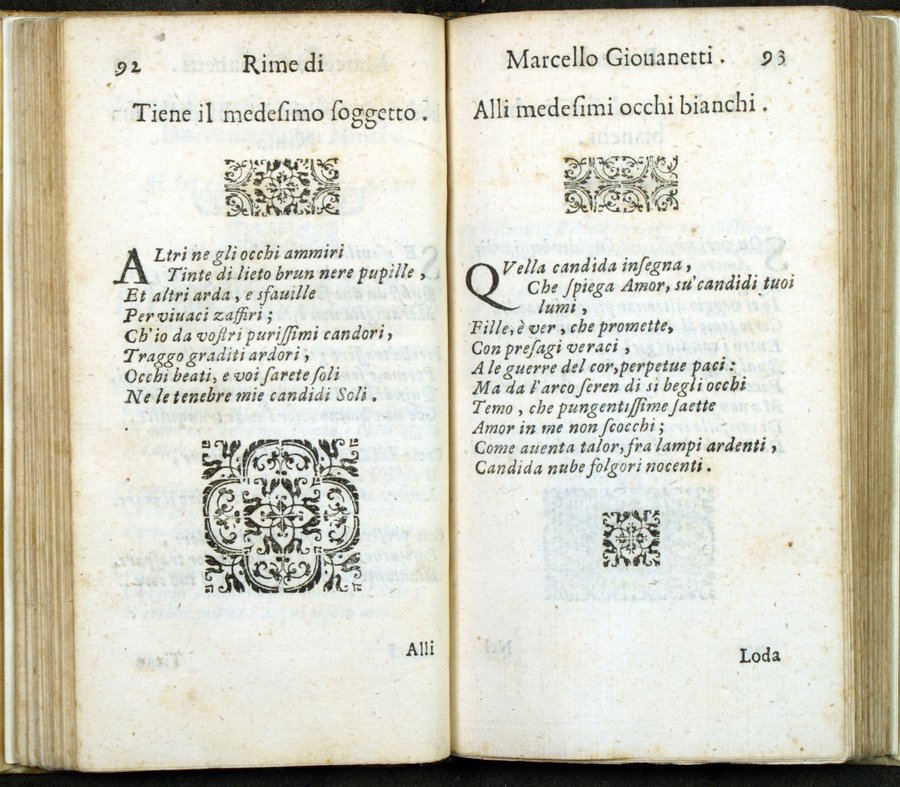 92 Rime di
Tiene il medeſimo ſoggetto.
ALtri ne gli occhi ammiri
Tinte di lieto brun nere pupille,
Et altri arda, e sfauille
Per viuaci zaffiri;
Ch'io da voſtri puriſſimi candori,
Traggo graditi ardori,
Occhi beati, e voi ſarete ſoli
Ne le tenebre mie candidi Soli.
Alli
Marcello Giouanetti. 93
Alli medeſimi occhi bianchi.
QVella candida inſegna,
Che ſpiega Amor, su' candidi tuoi
lumi,
Fille, è ver, che promette,
Con preſagi veraci,
A le guerre del cor, perpetue paci:
Ma da l'arco ſeren di sì begli occhi
Temo, che pungentiſſime ſaette
Amor in me non ſcocchi;
Come auenta talor, fra lampi ardenti,
Candida nube folgori nocenti.
Loda